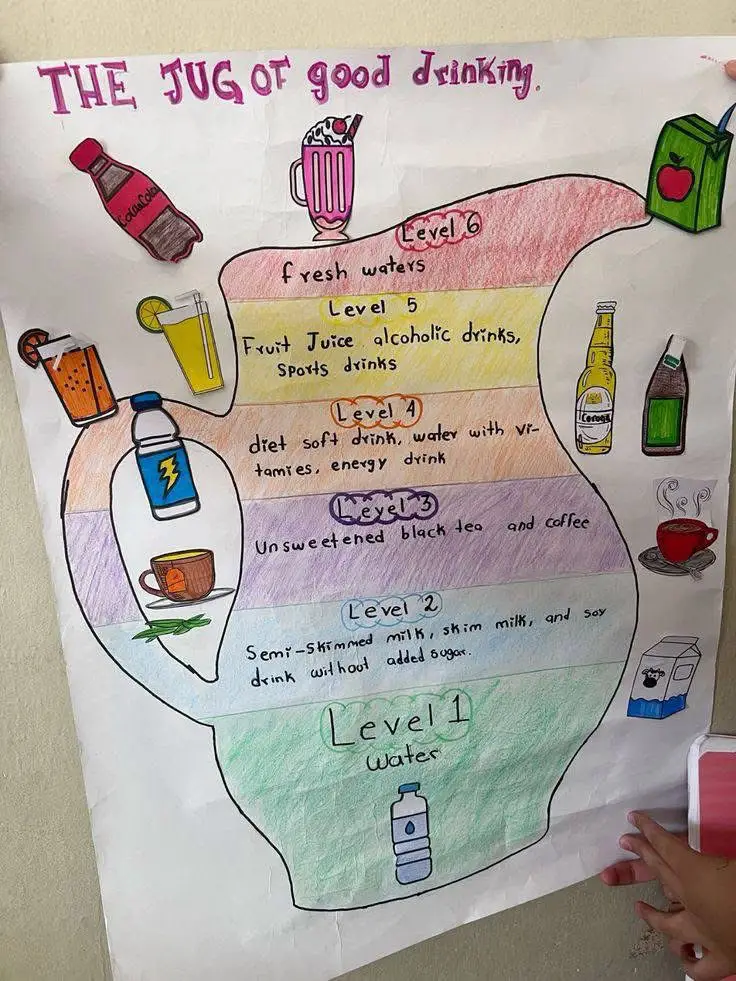 THE JUG OF good drinking.
CocaCola
Level 6
fresh waters
Level 5
Fruit Juice alcoholic drinks,
sports drinks
Level 4
diet soft drink, water with vi-
tamies, energy drink
Corona
Level 3
Unsweetened black tea and coffee
Level 2
Semi-skimmed milk, skim milk, and soy
drink without added sugar.
Level 1
Water